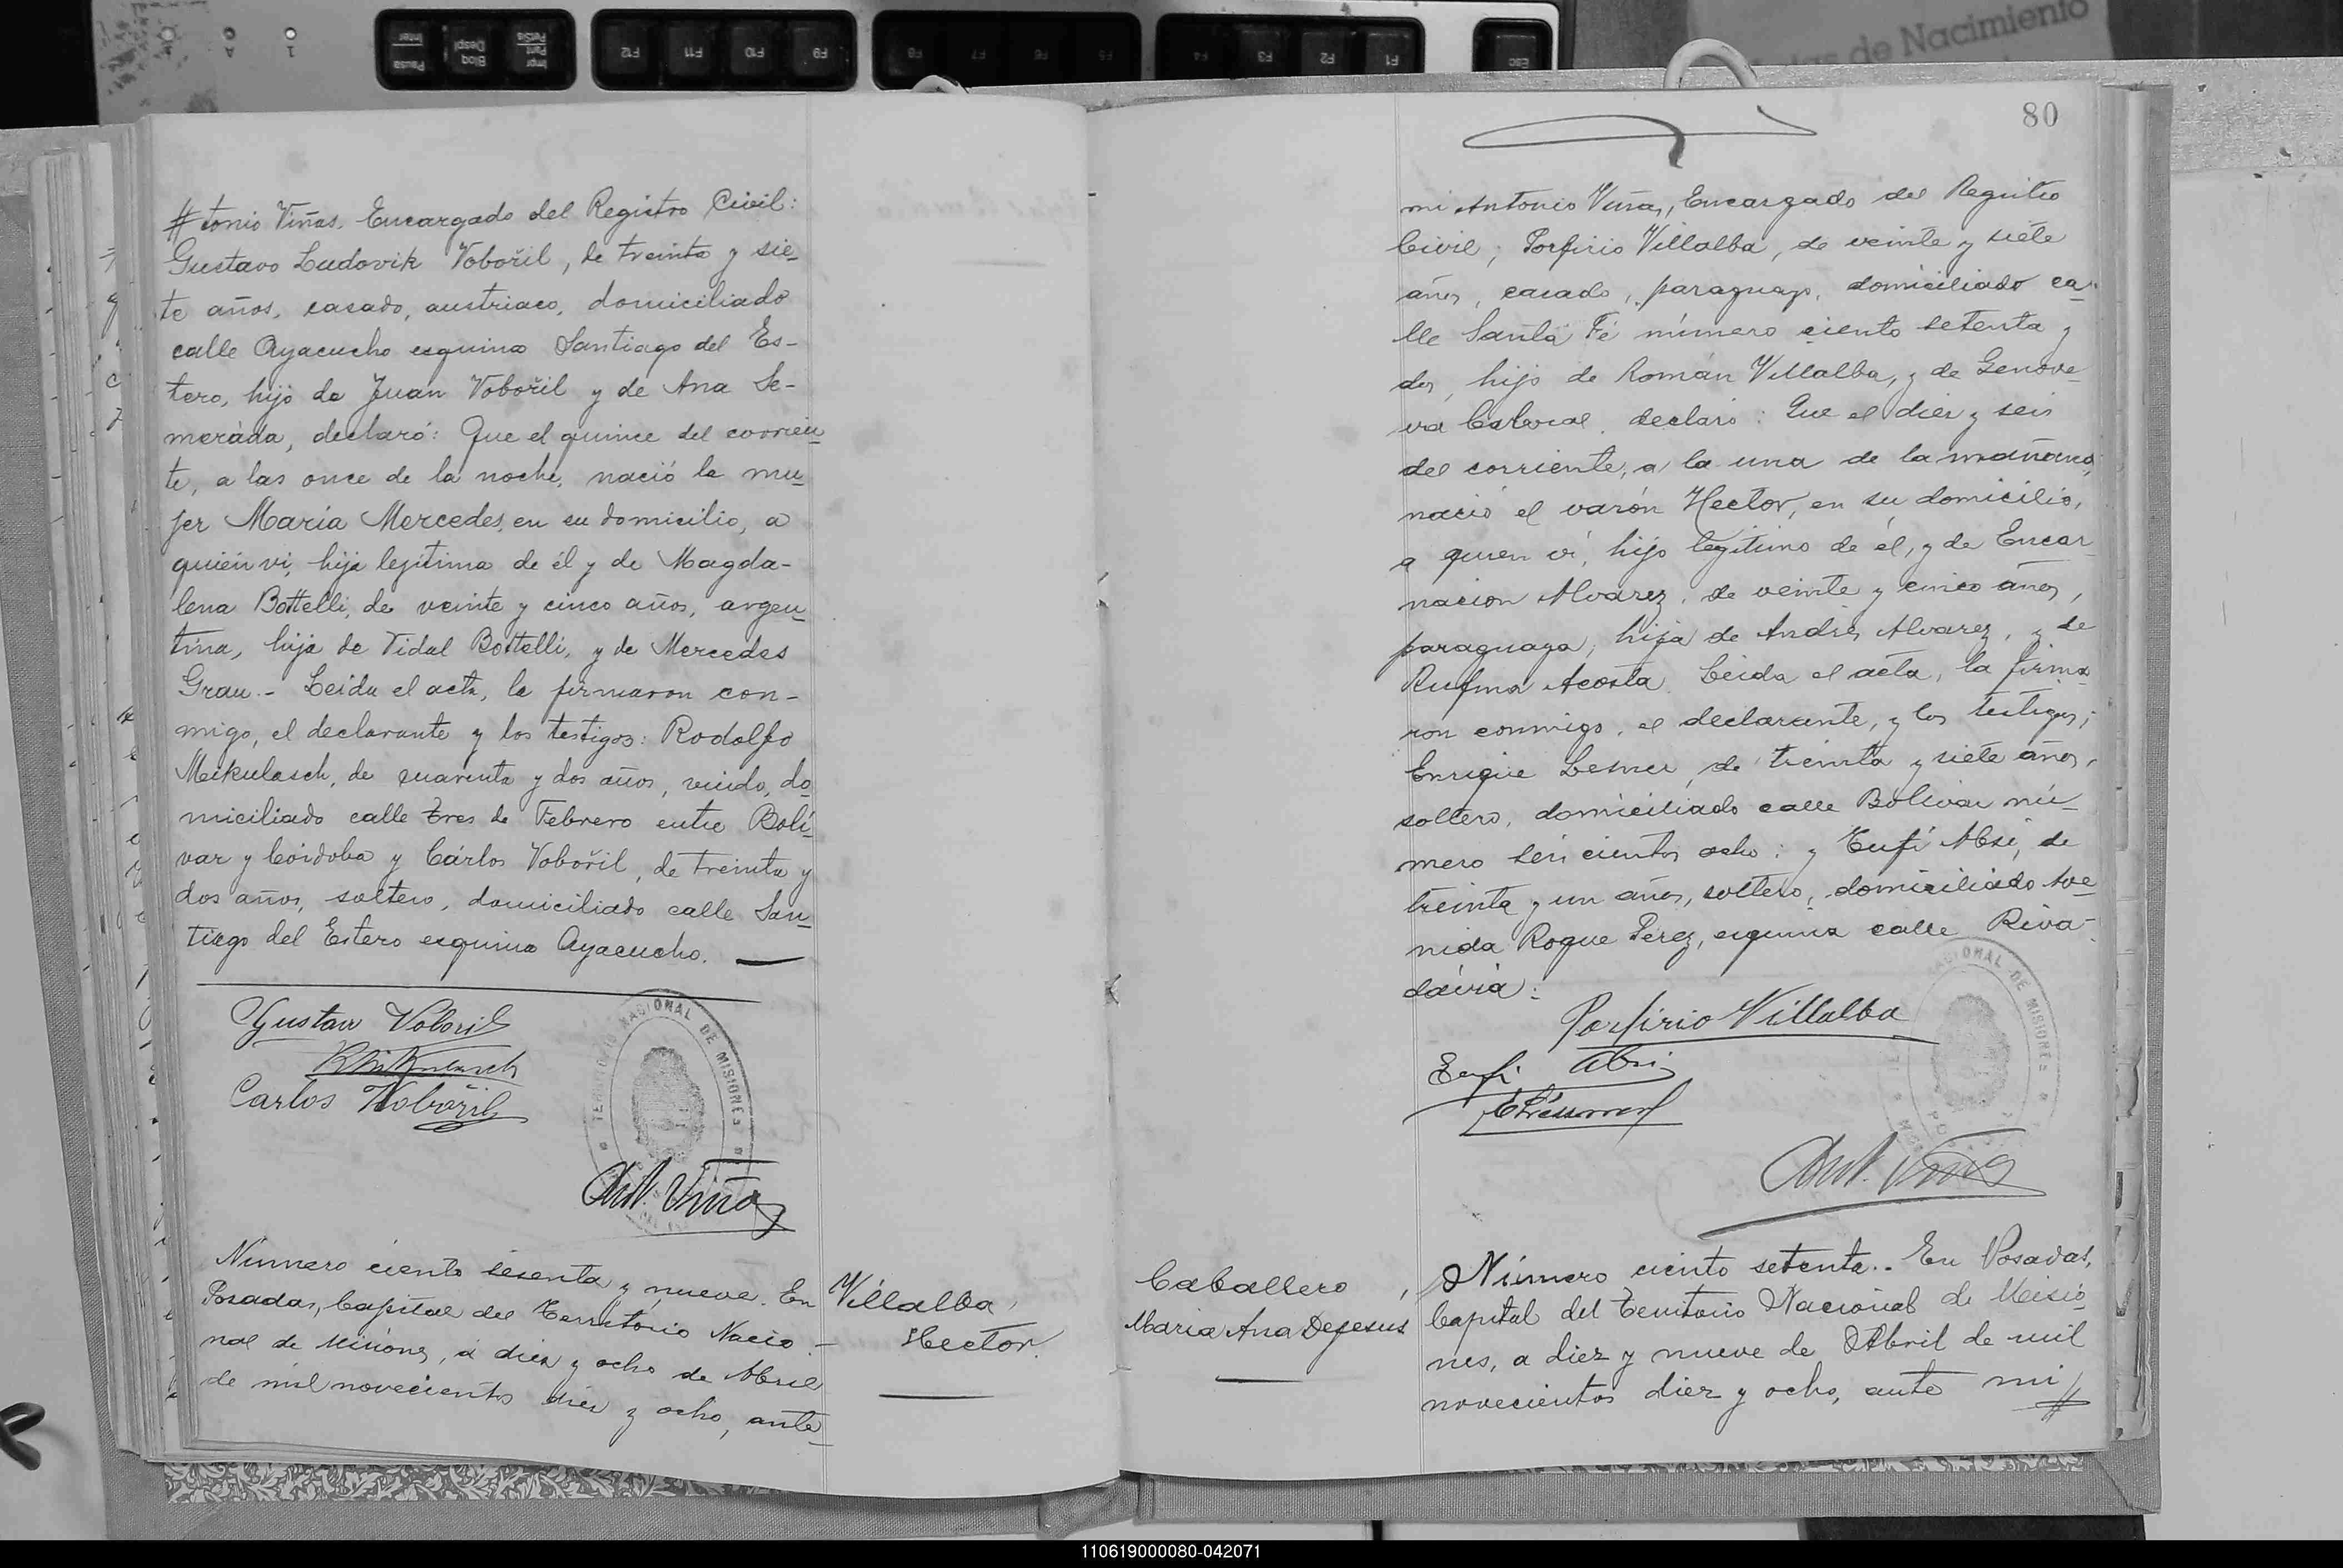 80
# tonio Viñas, Encargado del Registro Civil:
Gustavo Ludovik Vobořil, de treinta y sie-
te años, casado, austriaco, domiciliado
calle Ayacucho esquina Santiago del Es-
tero, hijo de Juan Vobořil y de Ana Se-
meráda, declaró: Que el quince del corrien-
te, a las once de la noche, nació la mu-
jer María Mercedes, en su domicilio, a
quién vi, hija legítima de él y de Magda-
lena Bottelli, de veinte y cinco años, argen-
tina, hija de Vidal Bottelli, y de Mercedes
Grau.- Leida el acta, la firmaron con-
migo, el declarante y los testigos: Rodolfo
Meikulasch, de cuarenta y dos años, viudo, do-
miciliado calle Tres de Febrero entre Bolí-
var y Córdoba y Cárlos Vobořil, de treinta y
dos años, soltero, domiciliado calle San-
tiago del Estero esquina Ayacucho.
Gustav Voboril
Carlos Vobořil
TERRITORIO NACIONAL DE MISIONES
Ant. Viñas
Número ciento sesenta y nueve. En
Posadas, Capital del Territorio Nacio-
nal de Misiones, á diez y ocho de Abril
de mil novecientos diez y ocho, ante
Villalba,
Hector.
mi Antonio Viñas, Encargado del Registro
Civil, Porfirio Villalba, de veinte y siete
años, casado, paraguayo, domiciliado ca-
lle Santa Fé número ciento setenta y
dos, hijo de Román Villalba, y de Genove-
va declaró: Que el diez y seis
del corriente, a la una de la mañana,
nació el varón Hector, en su domicilio,
a quien ví, hijo legítimo de él, y de Encar
nacion Alvarez, de veinte y cinco años,
paraguaya, hija de Andrés Alvarez, y de
Rufina Acosta. Leida el acta, la firma
ron conmigo, el declarante, y los testigos;
Enrique de treinta y siete años,
soltero, domiciliado calle Bolivar nú-
mero seis cientos ocho; y Eufi Absi, de
treinta y un años, soltero, domiciliado Ave-
nida Roque Perez, esquina calle Riva-
davia:
Porfirio Villalba
Eufi Absi
NACIONAL DE MISIONES
Ant. Viñas
Caballero,
Maria Ana Dejesus
Número ciento setenta.. En Posadas,
Capital del Territorio Nacional de Misio-
nes, a diez y nueve de Abril de mil
novecientos diez y ocho, ante mi #
110619000080-042071